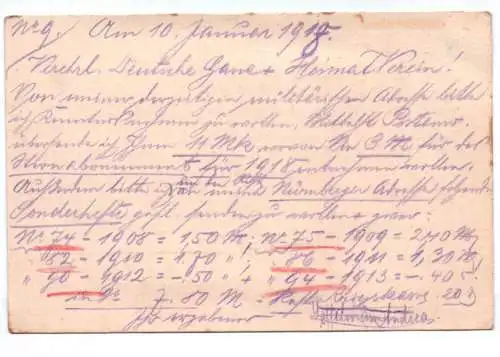 Nr 9. Am 10. Januar 1918.
Verehrl. Deutsche Gaue + Heimat Verein!
Von meiner derzeitigen militärischen Adresse bitte
ich Kenntnis nehmen zu wollen,
übersende ich Ihnen 11 Mk wovon Sie 3 M für das
Abonnement für 1918 entnehmen wollen.
Außerdem bitte ich an meine Nürnberger Adresse, folgende
Sonderhefte gefl. senden zu wollen
Nr. 74 - 1908 = 1,50 M; Nr. 75 - 1909 = 2,40 M;
" 82 - 1910 = 1.70 " ; " 86 - 1911 = 1,30 M;
" 90 - 1912 = -.50 " + " 94 - 1913 = -.40
in Sa 7.80 M - 20
Ihr ergebener
Andreas